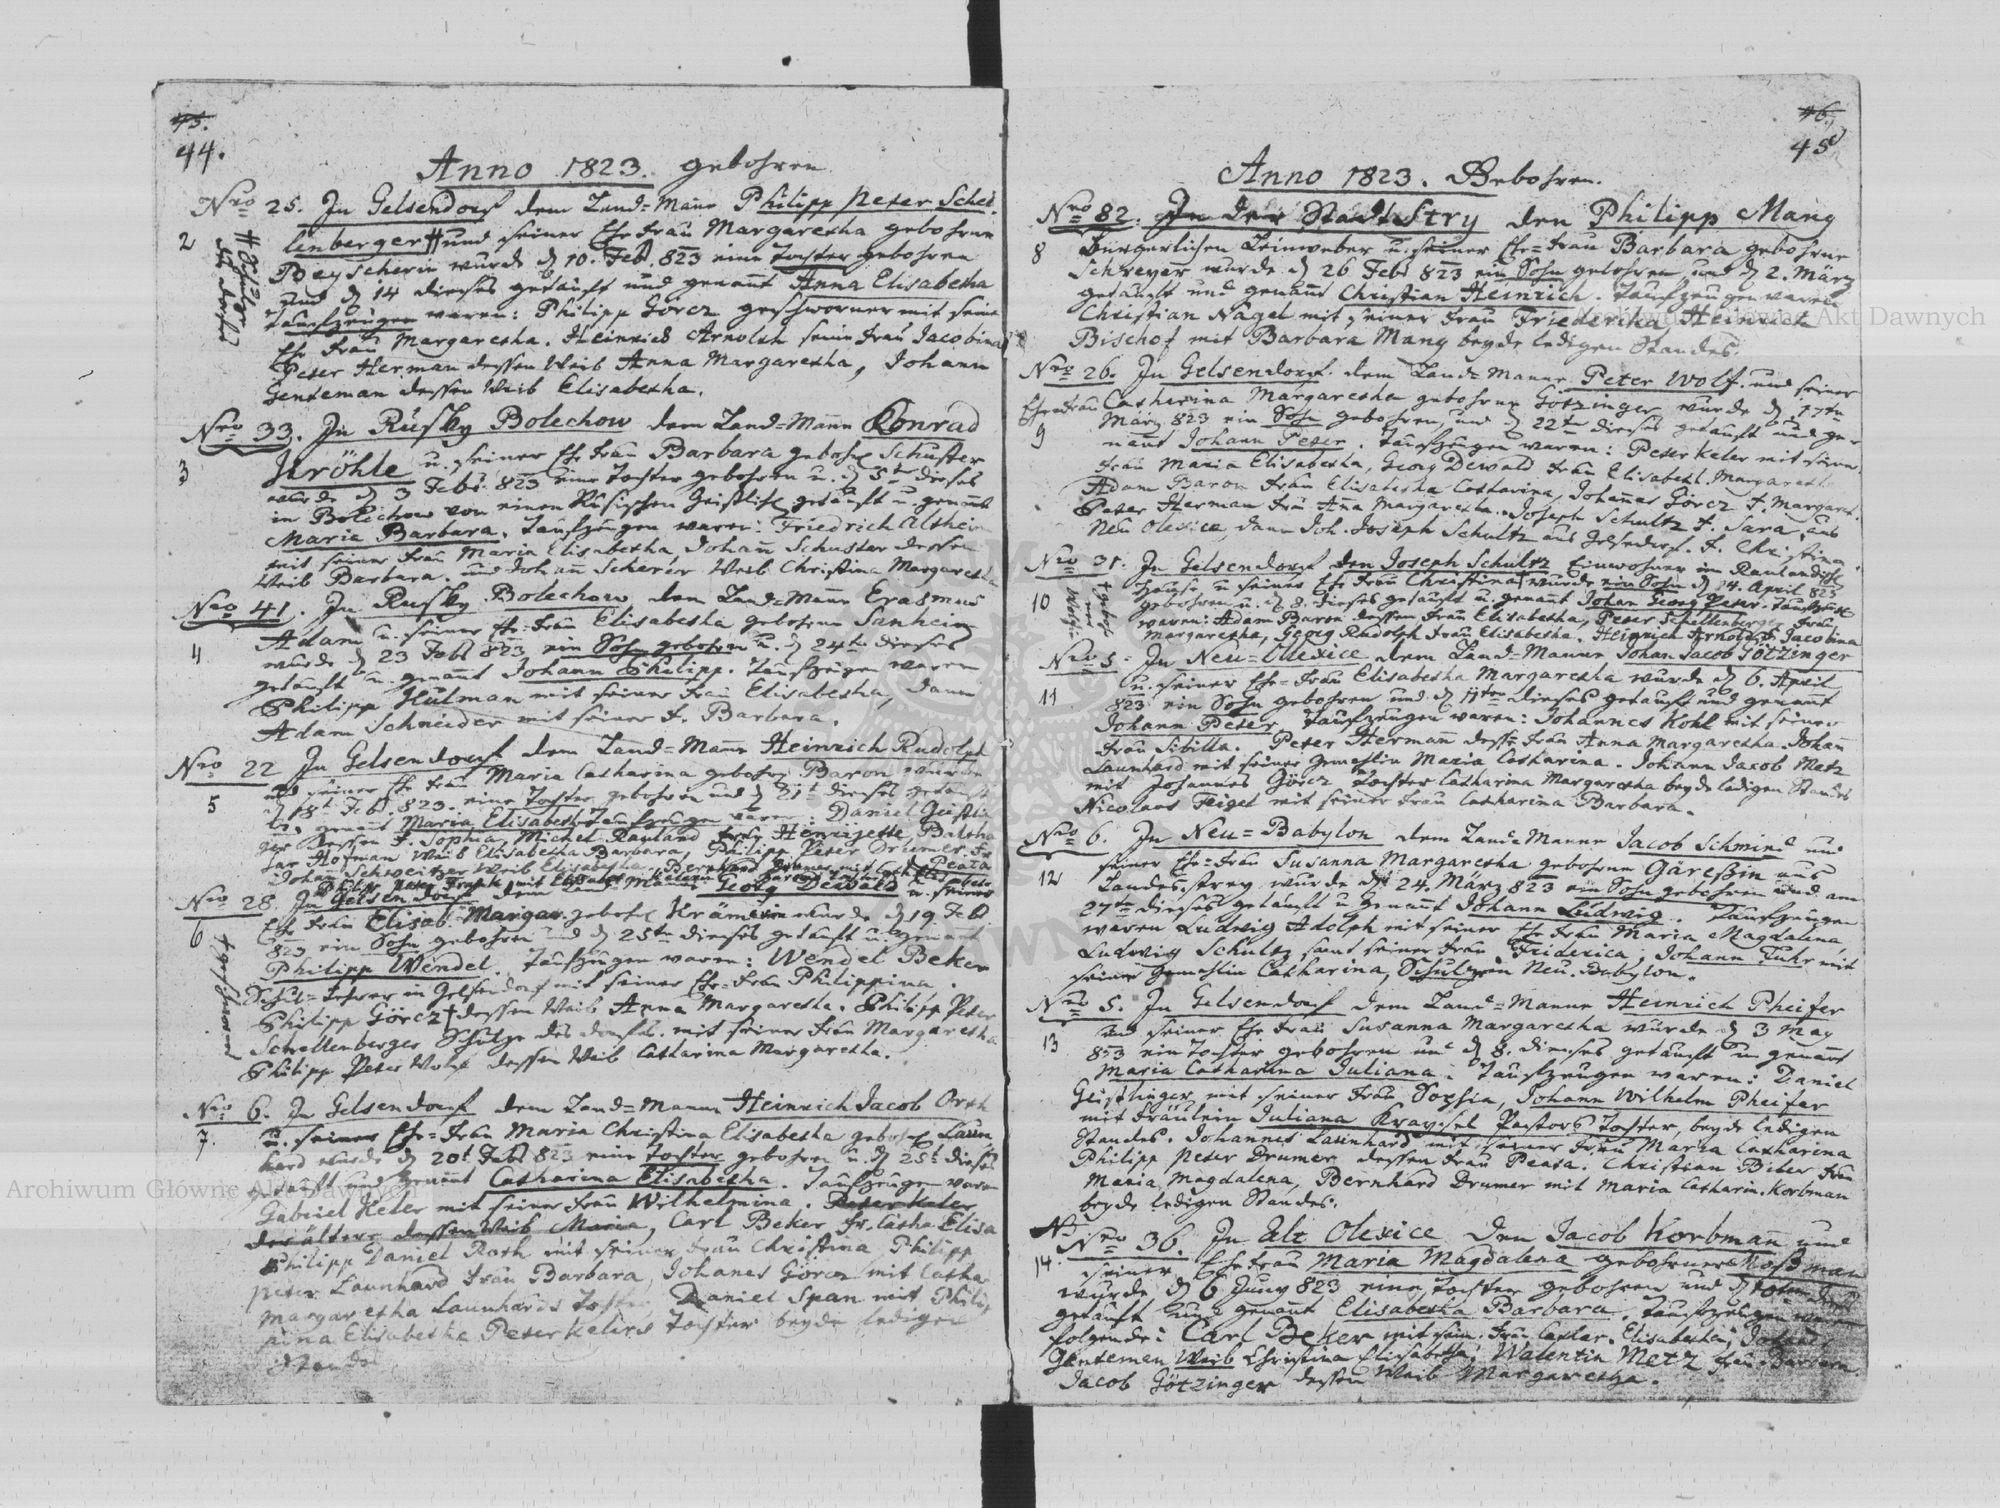 45.
44.
Anno 1823. gebohren.
Nro 25. In Gelsendorf dem Land=Mann Philipp Peter Schel
2
# Schulz des Dorfes
lenberger # und seiner Ehe Frau Margaretha gebohrne
Beyscherin wurde d 10. Feb. 823 eine Tochter gebohren
und d 14 dieses getauft und genant Anna Elisabetha
Taufzeugen waren: Philipp Görcz geschworner mit seine
Ehe Frau Margaretha. Heinrich Arnold seine Frau Jacobina
Peter Herman dessen Weib Anna Margaretha, Johann
Genteman dessen Weib Elisabetha.
Nro 33. In Rusky Bolechow dem Land=Mann Konrad
3
Kröhle u. seiner Ehe Frau Barbara gebohr Schuster
wurde d 3 Febr. 823 eine Tochter gebohren u. d 5t dieses
in Bolechow von einen Rusischen Geistlich getauft u genant
Maria Barbara. Taufzeugen waren: Friedrich Altheim
mit seiner Frau Maria Elisabetha, Johan Schuster dessen
Weib Barbara. und Johan Scherer Weib Christina Margaretha
Nro 41. In Rusky Bolechow dem Land=Mann Erasmus
4
Adam u. seiner Ehe=Frau Elisabetha gebohrne Sanheim
wurde d 23 Febr 823 ein Sohn gebohren u. d 24ten dieses
getauft u. genannt Johann Philipp. Taufzeugen waren
Philipp Hulman mit seiner Frau Elisabetha, dann
Adam Schnieder mit seiner F. Barbara.
Nro 22 In Gelsendorf dem Land=Mann Heinrich Rudolph
5
und seiner Ehe Frau Maria Catharina gebohrne Baron wurde
d 18t Febr. 823. eine Tochter gebohren und d 21t dieses getauft
u. genant Maria Elisabetha Taufzeugen waren: Daniel Geistlin
ger dessen F. Sophia, Michel Rauland Frau Henrijette, Baltha
sar Hofman Weib Elisabetha Barbara, Philipp Peter Drumer, Fr
Johan Schweitzer Weib Elisabetha, Bernhard Peata
Philipp Peter mit Elisabet
Nro 28. In Gelsendorf dem Georg Dewald u. seiner
6
† geschworner
Ehe Frau Elisab. Margar. gebohr Krämerin wurde d 19 Febr
823 ein Sohn gebohren und d 25ten dieses getauft u. genannt
Philipp Wendel. Taufzeugen waren: Wendel Beker
Schul=Lehrer in Gelsendorf mit seiner Ehe=Frau Philippina.
Philipp Görcz † dessen Weib Anna Margaretha. Philipp Peter
Schellenberger Schulze des Dorfes. mit seiner Frau Margaretha
Philipp Peter Wolf dessen Weib Catharina Margaretha.
Nro 6. In Gelsendorf dem Land=Mann Heinrich Jacob Orth
7.
u. seiner Ehe=Frau Maria Christina Elisabetha gebohr Laun
hard wurde d 20t Febr 823 eine Tochter gebohren u. d 25t dieses
getauft und genannt Catharina Elisabetha. Taufzeugen waren
Gabriel Keler mit seiner Frau Wilhelmina. Peter Keler
der ältere dessen Weib Maria, Carl Beker Fr. Catha Elisa
Philipp Daniel Roth mit seiner Frau Christina, Philipp
Peter Launhard Frau Barbara, Johanes Görcz mit Catha
Margaretha Launhards Tochter, Daniel Span mit Philip
pina Elisabetha Peter Kelers Tochter beyde ledigen
Standes
46.
45
Anno 1823. Gebohren.
Nro 82. In der Stadt Stry den Philipp Mang
8
Bürgerlichen Leinweber u. seiner Ehe=Frau Barbara gebohrne
Schreyer wurde d 26 Febr 823 ein Sohn gebohren und d 2. März
getauft und genannt Christian Heinrich. Taufzeugen waren
Christian Nagel mit seiner Frau Friederika, Heinrich
Bischof mit Barbara Mang beyde ledigen Standes.
Nro 26. In Gelsendorf. dem Land=Mann Peter Wolf. und seiner
Ehe Frau Catharina Margaretha gebohrne Götzinger wurde d 17ten
9
März 823 ein Sohn gebohren und d 22ten dieses getauft und ge-
nannt Johann Peter. Taufzeugen waren: Peter Keler mit seiner
Frau Maria Elisabetha, Georg Dewald Frau Elisabeth. Margareth
Adam Baron Frau Elisabetha Catharina, Johanes Görcz F. Margaret.
Peter Herman Frau Anna Margaretha. Joseph Schultz F. Sara, aus
Neu Olexice, dann Joh. Joseph Schultz aus Gelsendorf. F. Christina
Nro 31. In Gelsendorf den Joseph Schultz Einwohner im Raulandisch
10
Hause, u seiner Ehe Frau Christina † wurde ein Sohn d 4. April 823
gebohren u. d 8. dieses getauft u. genannt Johan Georg Peter. Taufzeuge
waren: Adam Baron dessen Frau Elisabetha, Peter Schellenberger Frau
Margaretha, Georg Rudolph Frau Elisabetha. Heinrich Arnold F. Jacobina
Nro 5. In Neu=Olexice dem Land=Mann Johan Jacob Götzinger
11
u. seiner Ehe=Frau Elisabetha Margaretha wurde d 6. April
823 ein Sohn gebohren und d 11ten dieses getauft und genannt
Johann Peter, Taufzeugen waren: Johannes Kohl mit seiner
Frau Sibilla. Peter Herman dessen Frau Anna Margaretha. Johan
Launhard mit seiner Gemahlin Maria Catharina. Johann Jacob Metz
mit Johannes Görcz Tochter Catharina Margaretha beyde ledigen Standes
Nicolaus Feigel mit seiner Frau Catharina Barbara.
Nro 6. In Neu=Babylon dem Land=Mann Jacob Schmied und
12
seiner Ehe=Frau Susanna Margaretha gebohrne Gäreßin aus
Landestrey wurde d 24. März 823 ein Sohn gebohren und am
27ten dieses getauft u genannt Johann Ludwig. Taufzeugen
waren Ludwig Adolph mit seiner Ehe Frau Maria Magdalena
Ludwig Schultz samt seiner Frau Friderica, Johann Fuhr mit
seiner Gemahlin Catharina, Schulz in Neu-Babylon.
Nro 5. In Gelsendorf dem Land=Mann Heinrich Pheifer
13
und seiner Ehe Frau Susanna Margaretha wurde d 3 May
823 ein Tochter gebohren und d 8. dieses getauft u. genannt
Maria Catharina Juliana. Taufzeugen waren: Daniel
Geistlinger mit seiner Frau Sophia, Johann Wilhelm Pheifer
mit Fräulein Juliana Kraysel Pastors Tochter, beyde ledigen
Standes. Johannes Launhard mit seiner Frau Maria Catharina
Philipp Peter Drumer dessen Frau Peata. Christian Biber Frau
Maria Magdalena, Bernhard Drumer mit Maria Catharin. Korbman
beyde ledigen Standes.
Nro 36. In Alt Olexice den Jacob Korbmann und
14.
seiner Ehe Frau Maria Magdalena gebohrner Moßman
wurde d 6 Juny 823 eine Tochter gebohren und d 10ten dieses
getauft und genannt Elisabetha Barbara, Taufzeugen waren
folgende: Carl Beker mit sein. Frau Cathar. Elisabetha, Johan
Genteman Weib Christina Elisabetha, Walentin Metz Frau Barbara
Jacob Götzinger dessen Weib Margaretha.
Archiwum Główne Akt Dawnych
Archiwum Główne Akt Dawnych